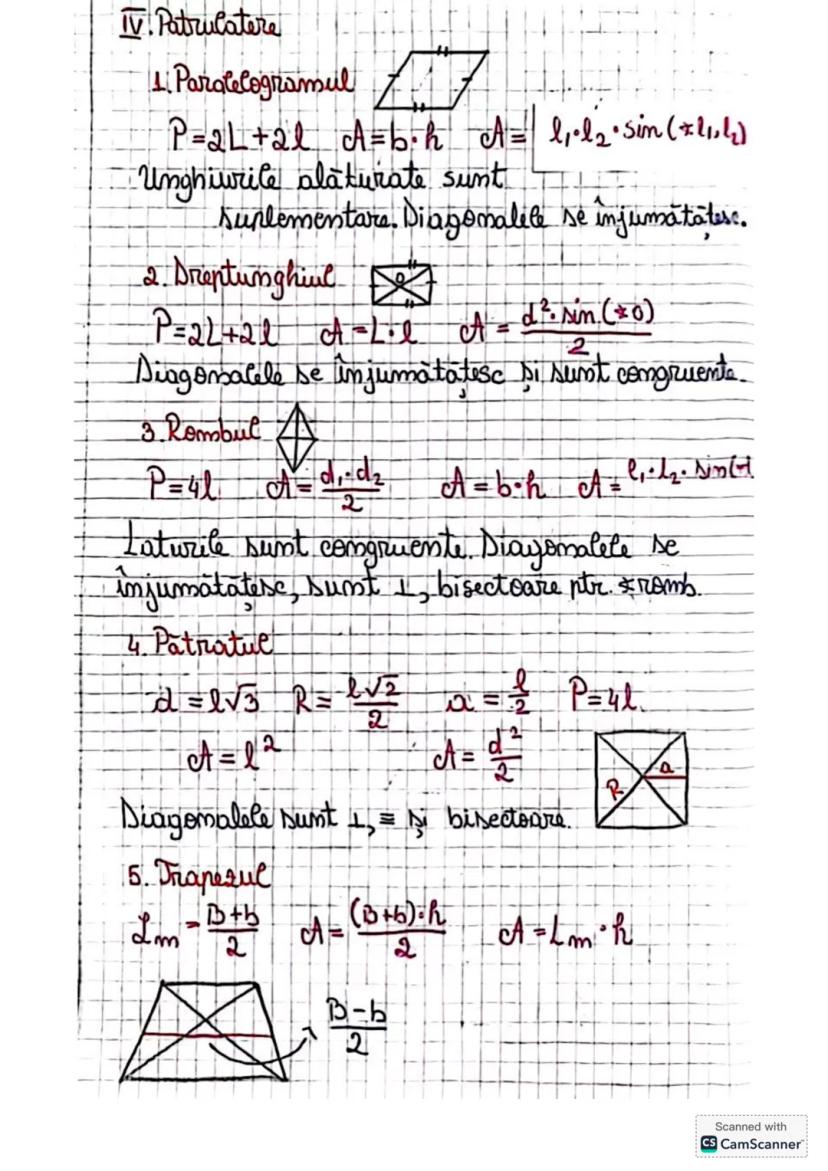 IV. Patrulatere
1. Paralelogramul
P=2L+2l A=b·h A= l₁·l₂·sin(∢l₁,l₂)
Unghiurile alăturate sunt
suplementare. Diagonalele se înjumătățesc.
2. Dreptunghiul
O
P=2L+2l A=L·l A= d²·sin(∢O)/2
Diagonalele se înjumătățesc și sunt congruente.
3. Rombul
P=4l A= d₁·d₂/2 A=b·h A= l₁·l₂·sin(
Laturile sunt congruente. Diagonalele se
înjumătățesc, sunt ⊥, bisectoare ptr. ∢romb.
4. Pătratul
d=l√3 R= l√2/2 a= l/2 P=4l
A=l² A= d²/2
R a
Diagonalele sunt ⊥, ≡ și bisectoare.
5. Trapezul
Lm= B+b/2 A= (B+b)·h/2 A=Lm·h
B-b/2
Scanned with
CS CamScanner